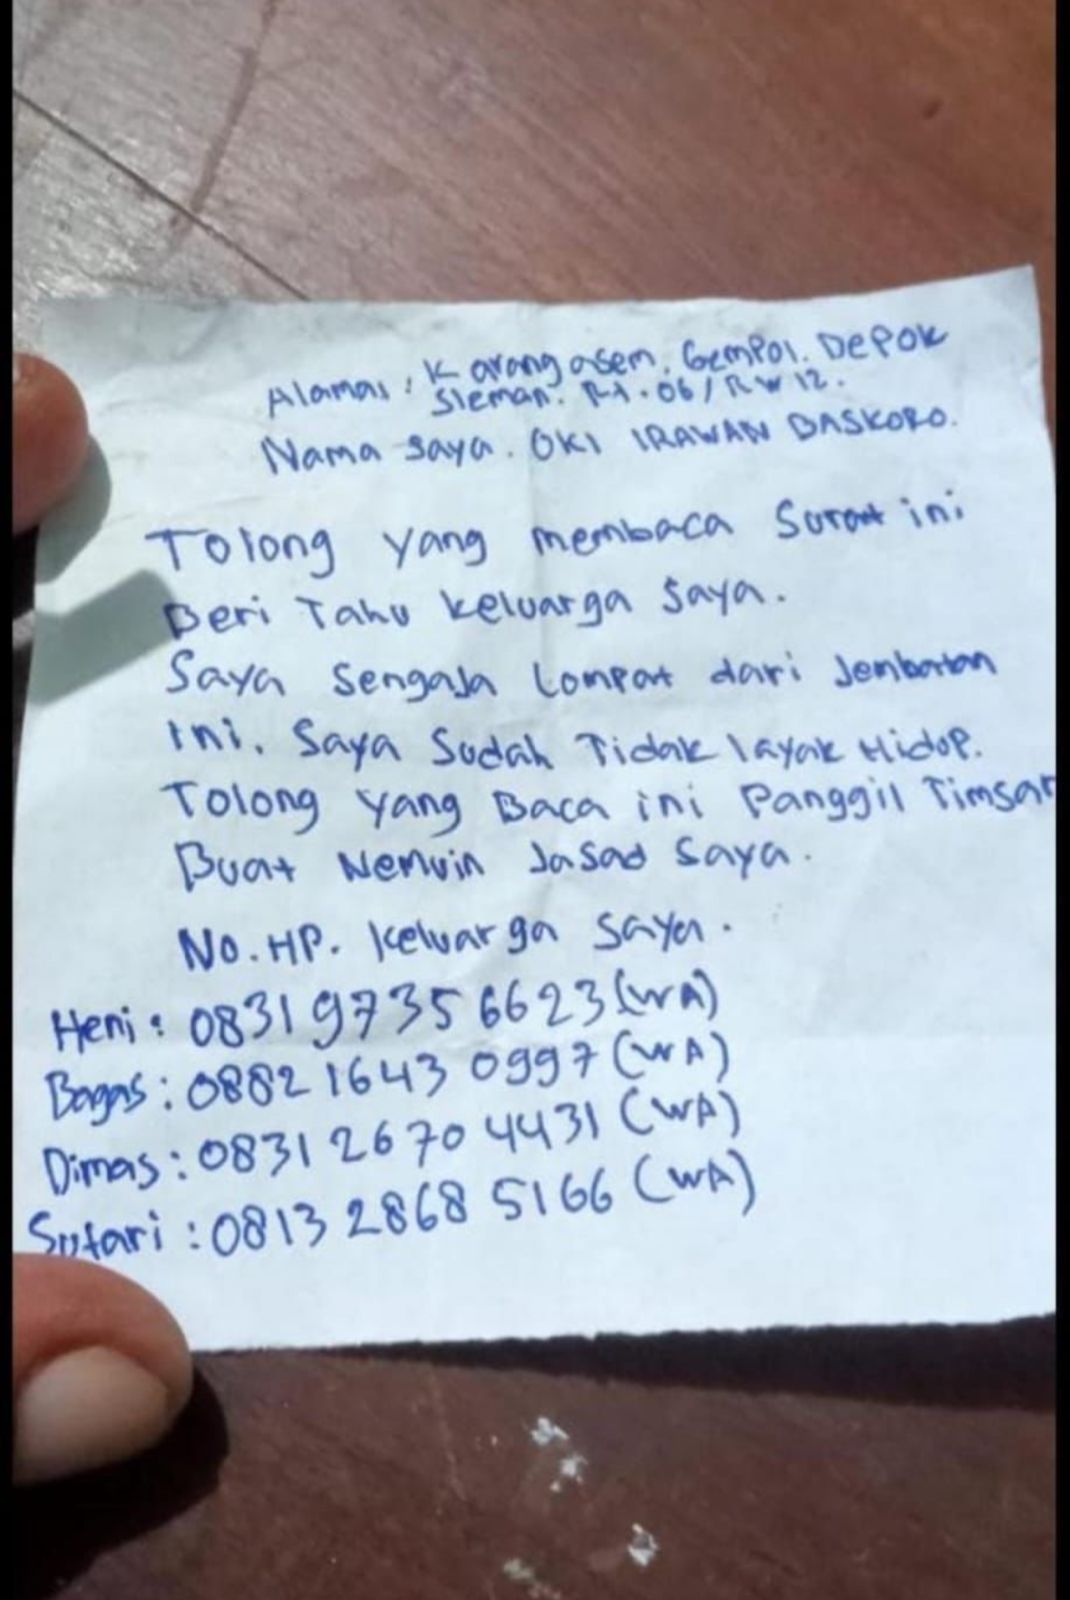 Alamat : Karangasem. Gempol. Depok
Sleman. Rt. 06 / RW 12.
Nama saya. OKI IRAWAN BASKORO.
Tolong yang membaca Surat ini
Beri Tahu keluarga saya.
Saya Sengaja Lompat dari Jembatan
ini. Saya Sudah Tidak layak Hidup.
Tolong yang Baca ini Panggil Timsar
Buat Nemuin Jasad Saya.
No. HP. keluarga saya.
Heni : 0831 9735 6623 (WA)
Bagas : 0882 1643 0997 (WA)
Dimas : 0831 2670 4431 (WA)
Sutari : 0813 2868 5166 (WA)